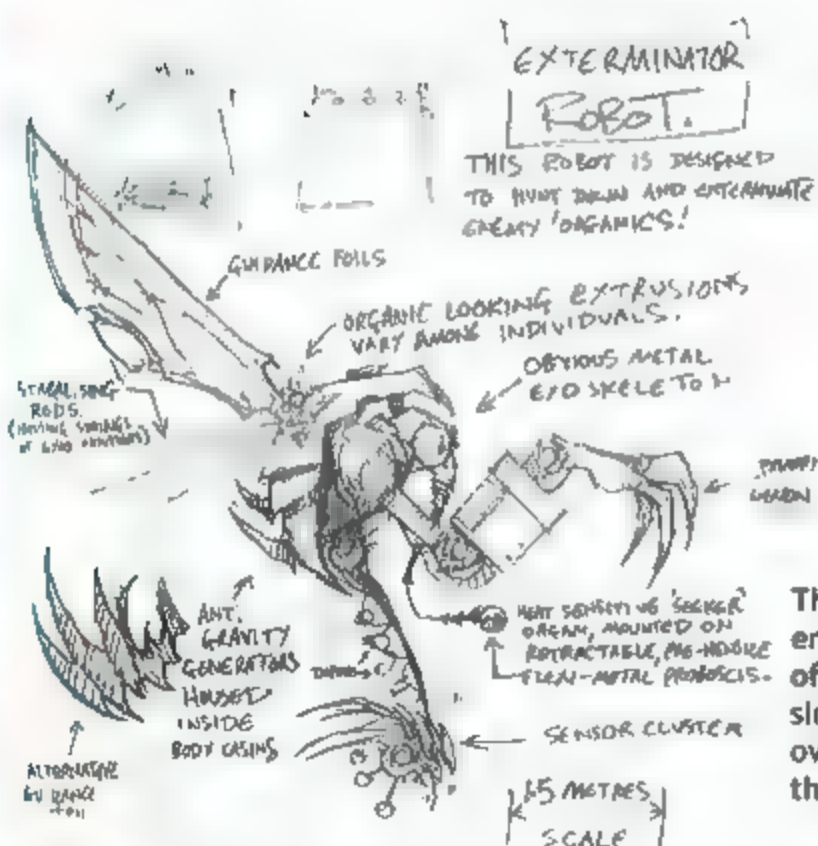 EXTERMINATOR
ROBOT.
THIS ROBOT IS DESIGNED
TO HUNT DOWN AND EXTERMINATE
ENEMY 'ORGANICS!
GUIDANCE FOILS
ORGANIC LOOKING EXTRUSIONS
VARY AMONG INDIVIDUALS.
OBVIOUS METAL
EXOSKELETON
RODS.
ANTI
GRAVITY
GENERATORS
HOUSED
INSIDE
BODY CASING
HEAT SENSITIVE 'SEEKER'
ORGAN, MOUNTED ON
RETRACTABLE,
FLEXI-METAL PROBOSCIS.
SENSOR CLUSTER
ALTERNATIVE
GUIDANCE
FOIL
METRES
SCALE
Th
en
of
sid
ov
th